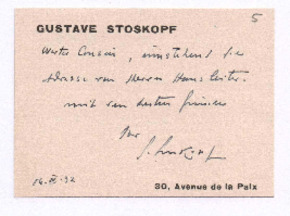 5
GUSTAVE STOSKOPF
Werter Cousin, umstehend die
Adresse von Herrn Hans
mit den besten Grüssen
Ihr
G. Stoskopf
30, Avenue de la Paix